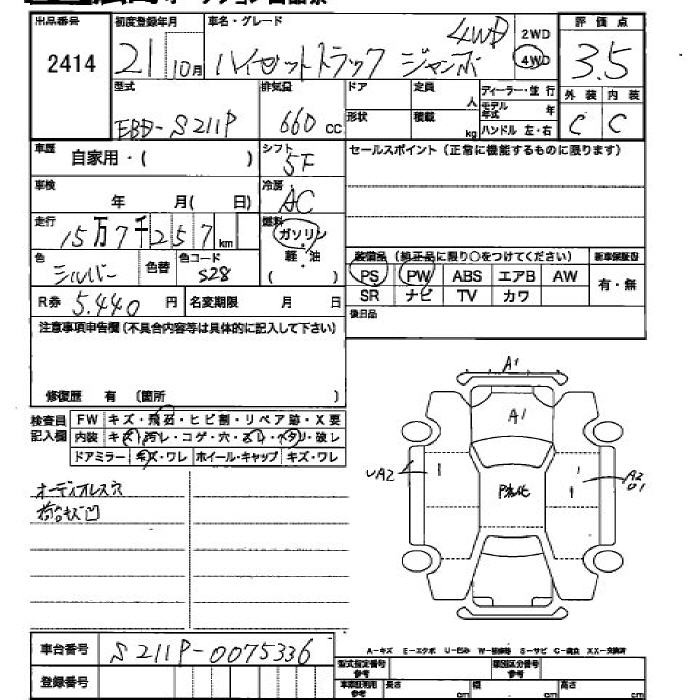 出品番号 初度登録年月 車名・グレード 評価点
2414 21 10月 ハイゼットトラック ジャンボ 4WD 2WD 4WD 3.5
型式 排気量 ドア 定員 人 ディーラー・並行 外装 内装
EBD-S211P 660 cc 形状 積載 kg モデル年式 年 ハンドル 左・右 C C
車歴 自家用・( ) シフト 5F セールスポイント(正常に機能するものに限ります)
車検 年 月( 日) 冷房 AC
走行 15万7千257km 燃料 ガソリン・軽油 ( )
色 シルバー 色替 色コード S28
装備品(純正品に限り○をつけてください) 新車保証書
PS PW ABS エアB AW 有・無
SR ナビ TV カワ
R券 5.440円 名変期限 月 日 後日品
注意事項申告欄(不具合内容等は具体的に記入して下さい)
修復歴 有 (箇所 )
検査員記入欄 FW キズ・飛石・ヒビ割・リペア跡・X要
内装 キズ・汚レ・コゲ・穴・スレ・ヘタリ・破レ
ドアミラー キズ・ワレ ホイール・キャップ キズ・ワレ
A1
A1
UA2
A2
P劣化
オーディオレス穴
車台番号 S211P-0075336
登録番号
A-キズ E-エクボ U-凹み W-補修跡 S-サビ C-腐食 XX-交換済
型式指定番号 参考 類別区分番号 参考
参考 長さ cm 幅 cm 高さ cm